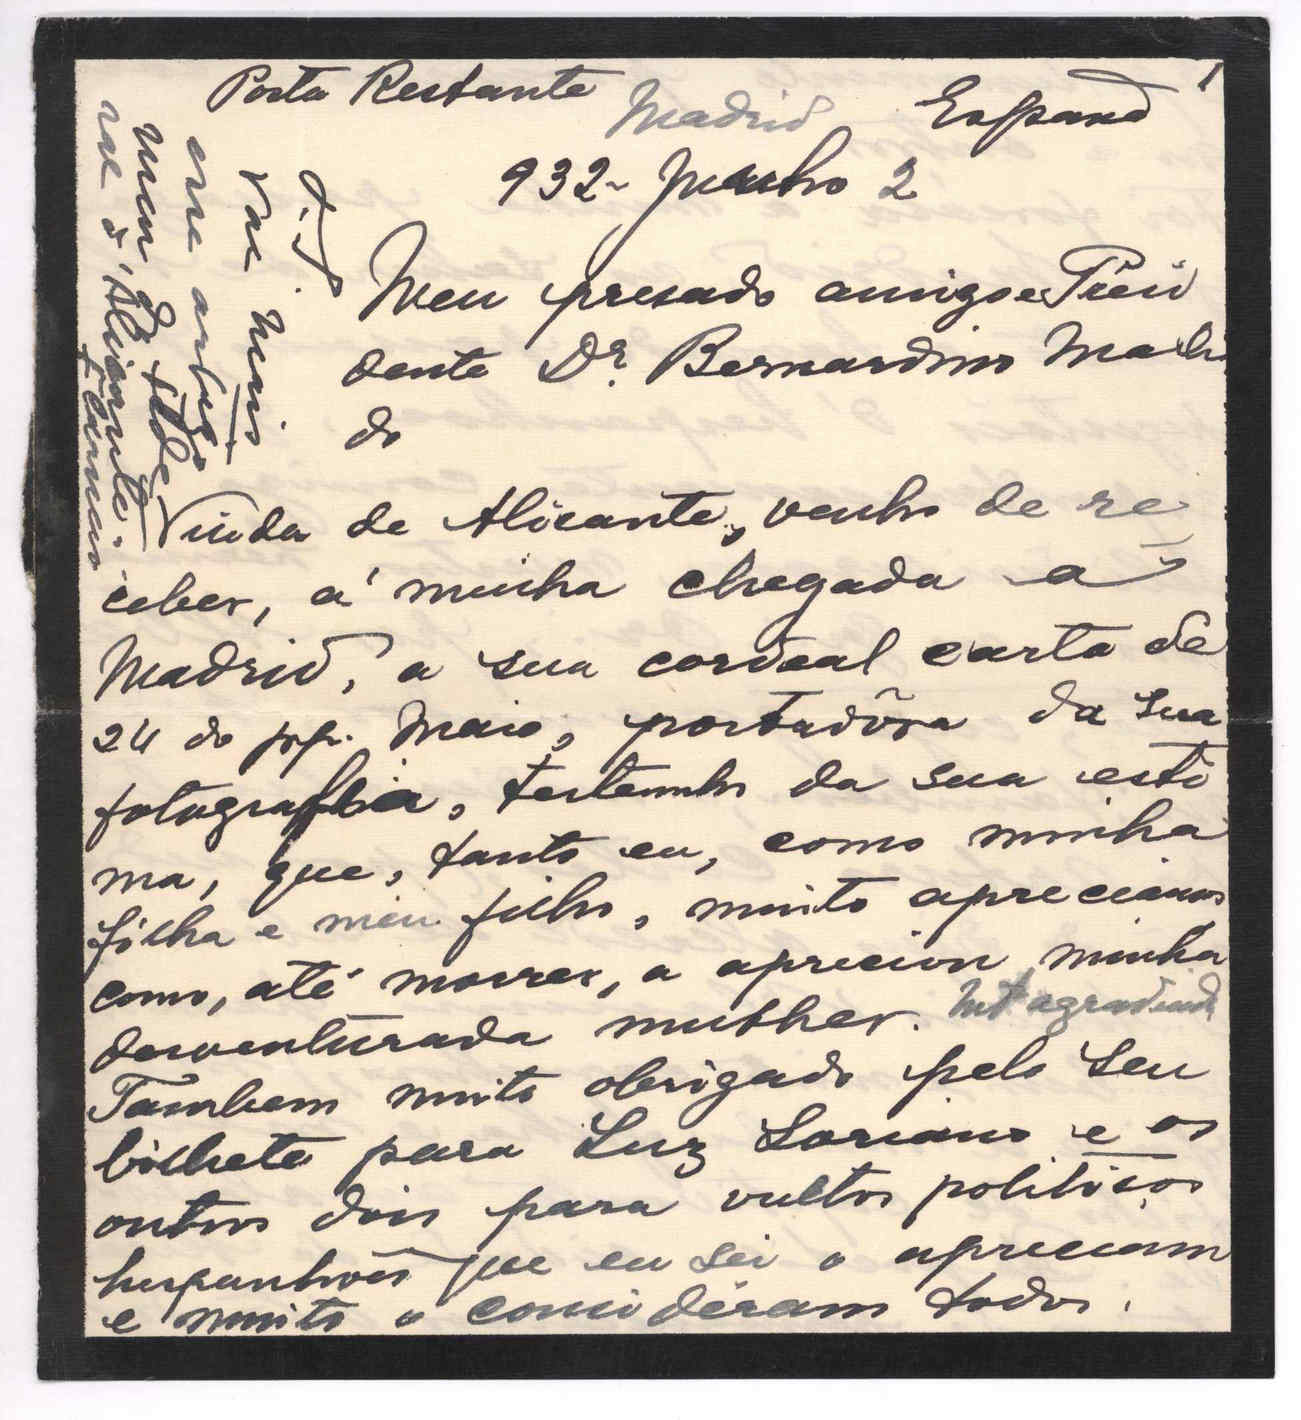 1
Posta Restante
Madrid España
932 - Junho 2
Meu presado amigo e Presi
dente Dr. Bernardino Macha
do
Vindo de Alicante, venho de re
ceber, á minha chegada a
Madrid, a sua cordeal carta de
24 do pp. Maio, portadôra da sua
fotografia, testemunho da sua esti
ma, que, tanto eu, como minha
filha e meu filho, muito apreciamos
como, até morrer, a apreciou minha
desventurada mulher. Mto agradecido
Tambem muito obrigado pelo seu
bilhete para Luz Soriano e os
outros dois para vultos politicos
hespanhoes que eu sei o apreciam
e muito o consideram todos.
P.S.
Vae mais
um artigo
meu do
de Alicante.